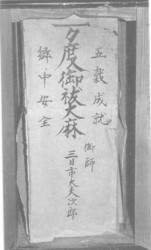 五穀成就
一万度御祓大麻
郷中安全
御師
三日市大夫次郎